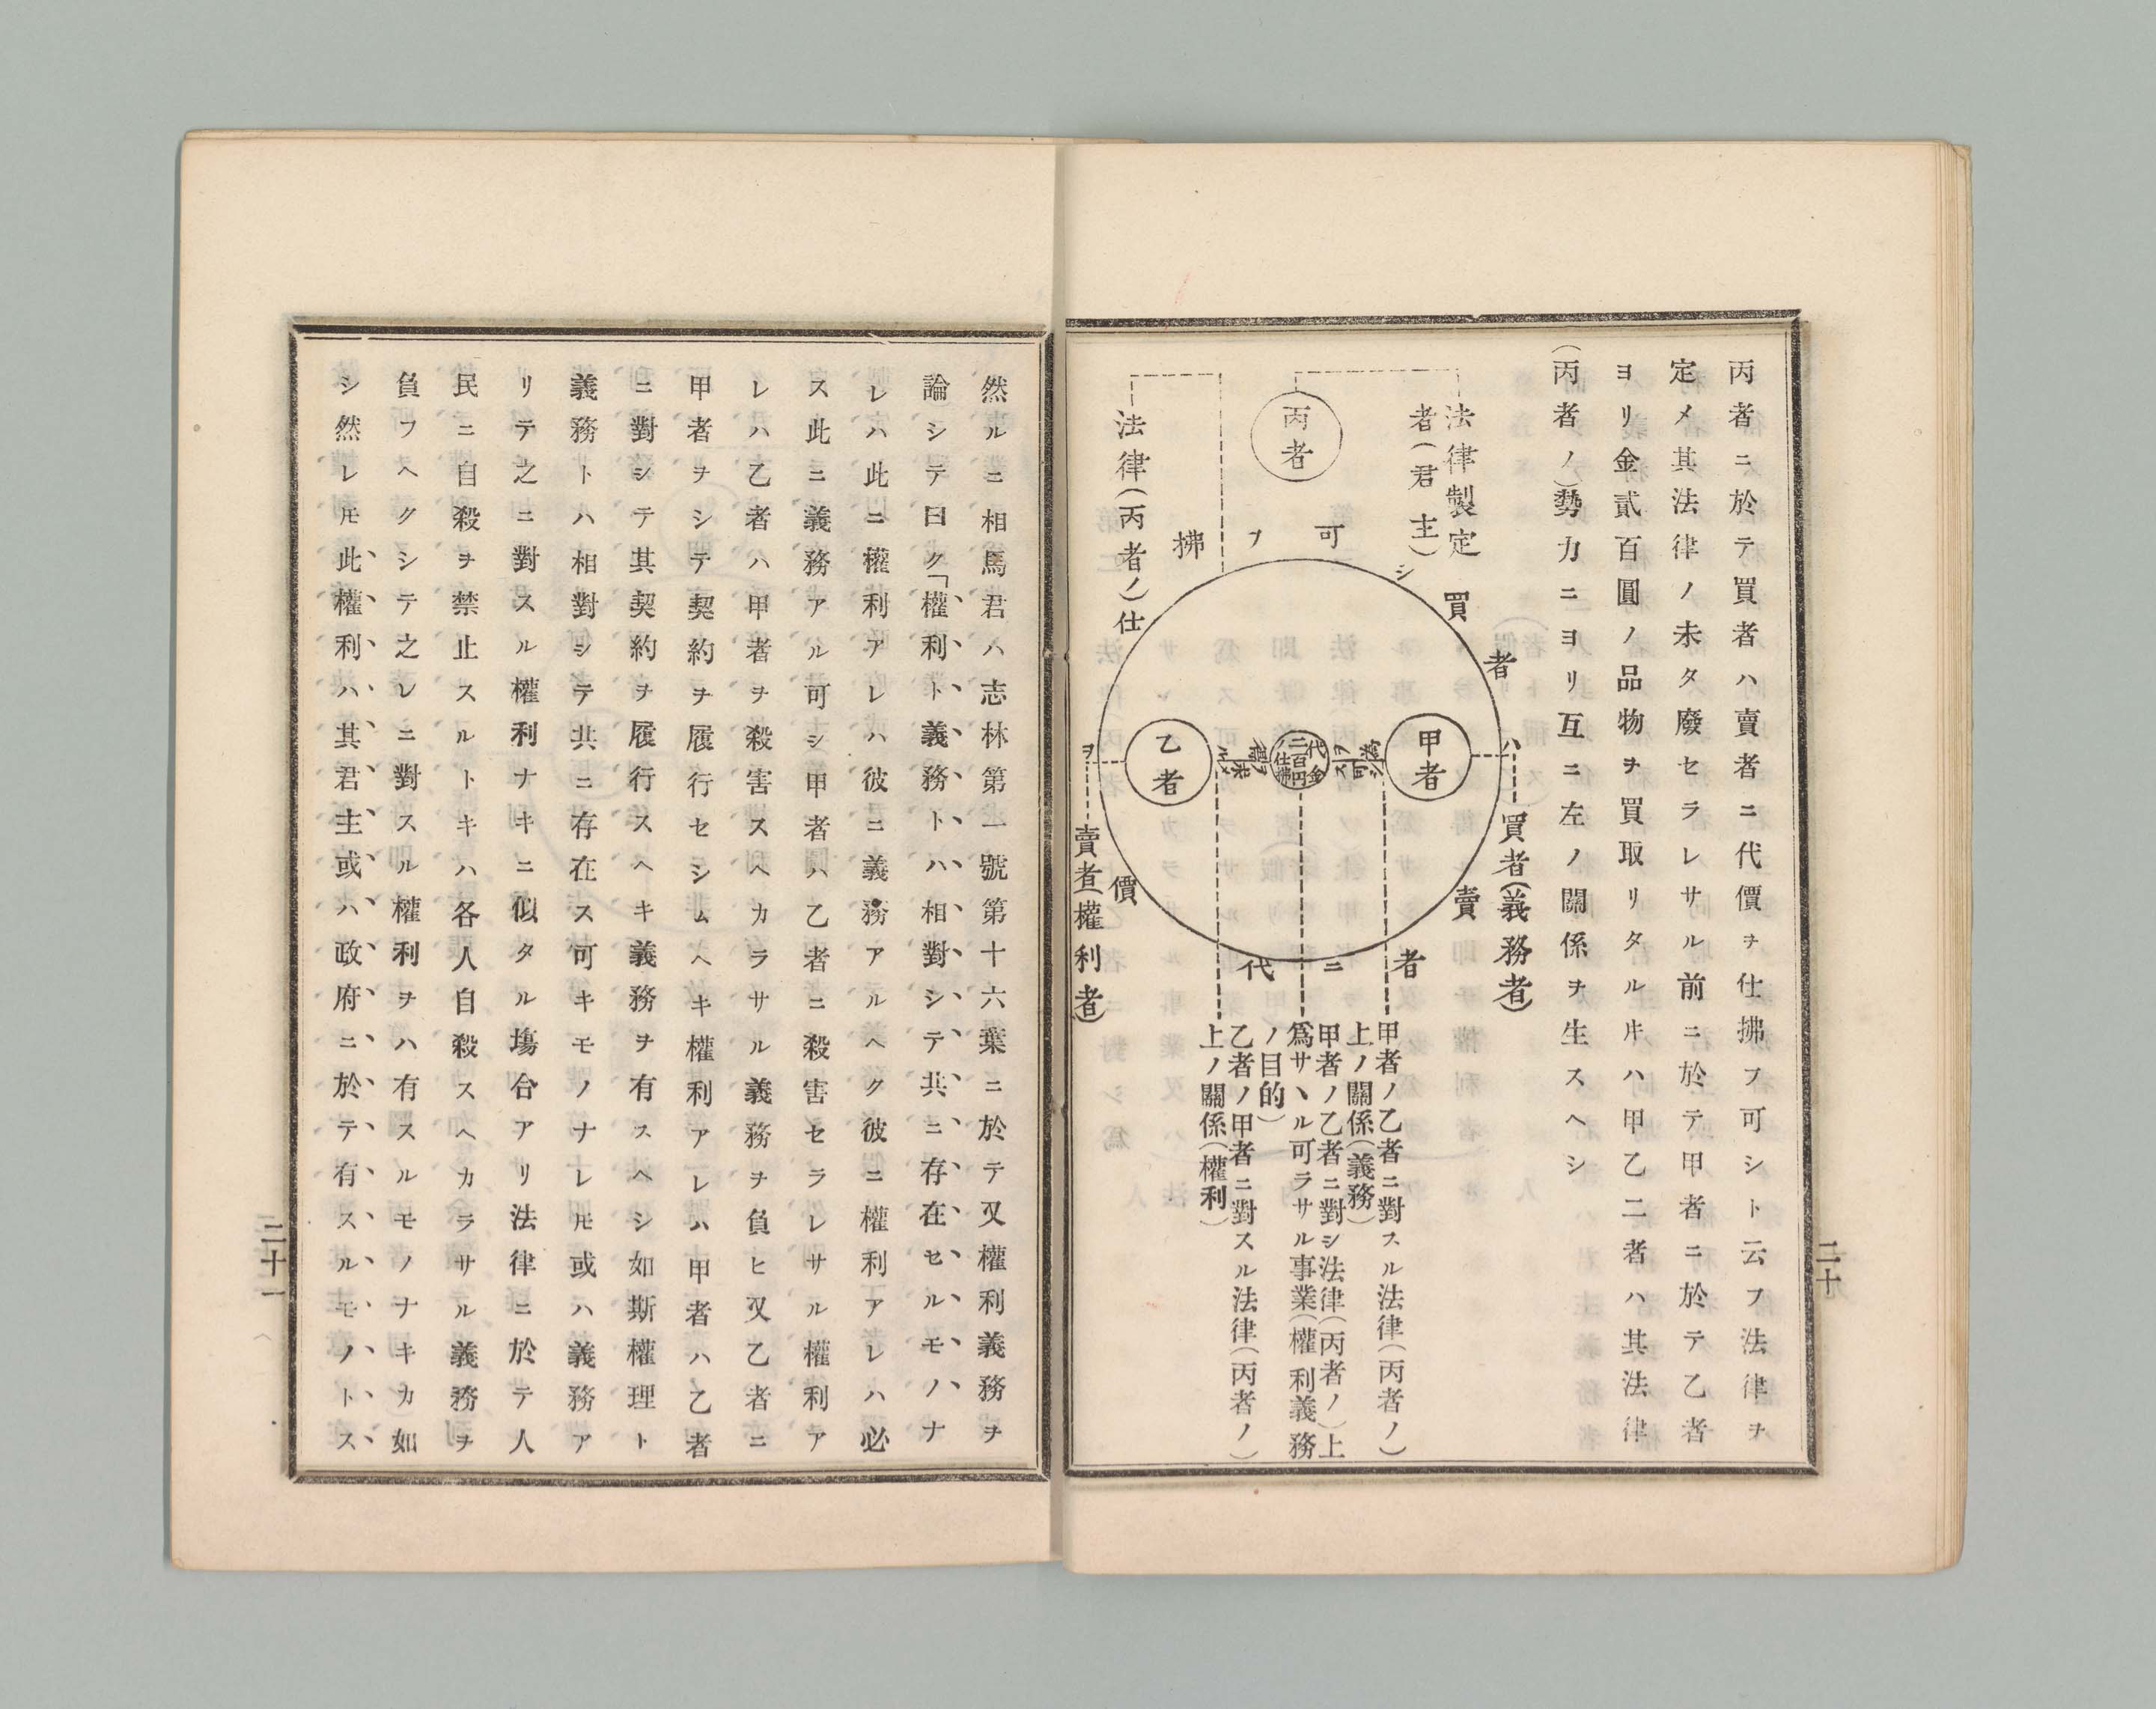 丙者ニ於テ買者ハ賣者ニ代價ヲ仕拂フ可シト云フ法律ヲ
定メ其法律ノ未タ廢セラレサル前ニ於テ甲者ニ於テ乙者
ヨリ金貳百圓ノ品物ヲ買取リタル𪜈ハ甲乙二者ハ其法律
(丙者ノ)勢力ニヨリ互ニ左ノ關係ヲ生スヘシ
法律製定
者(君主)
丙者
法律(丙者ノ)仕
買者ハ賣者ニ代價ヲ
拂ヲ可シ
甲者
買者(義務者)
代金
二百円
仕拂
乙者
賣者(權利者)
甲者ノ乙者ニ對スル法律(丙者ノ)
上ノ關係(義務)
甲者ノ乙者ニ對シ法律(丙者ノ)上
爲サヽル可ラサル事業(權利義務
ノ目的)
乙者ノ甲者ニ對スル法律(丙者ノ)
上ノ關係(權利)
二十
然ルニ相馬君ハ志林第一號第十六葉ニ於テ又權利義務ヲ
論シテ曰ク「權利ト義務トハ相對シテ共ニ存在セルモノナ
レハ此ニ權利アレハ彼ニ義務アルヘク彼ニ權利アレハ必
ス此ニ義務アル可シ甲者ハ乙者ニ殺害セラレサル權利ア
レハ乙者ハ甲者ヲ殺害スヘカラサル義務ヲ負ヒ又乙者ニ
甲者ヲシテ契約ヲ履行セシムヘキ權利アレハ甲者ハ乙者
ニ對シテ其契約ヲ履行スヘキ義務ヲ有スヘシ如斯權理ト
義務トハ相對シテ共ニ存在ス可キモノナレ𪜈或ハ義務ア
リテ之ニ對スル權利ナキニ似タル塲合アリ法律ニ於テ人
民ニ自殺ヲ禁止スルトキハ各人自殺スヘカラサル義務ヲ
負フヘクシテ之レニ對スル權利ヲハ有スルモノナキカ如
シ然レ𪜈此權利ハ其君主或ハ政府ニ於テ有スルモノトス
二十一